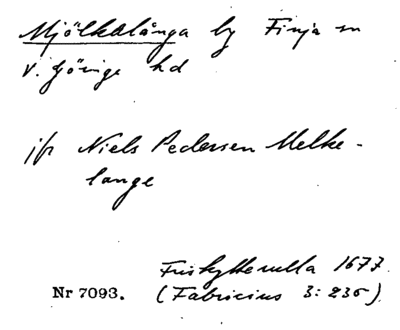 Mjölkalånga by Finja sn
V. Göinge hd
jfr Niels Pedersen Melke-
lange
Friskytterulla 1677
Nr 7093. (Fabricius 3: 235).